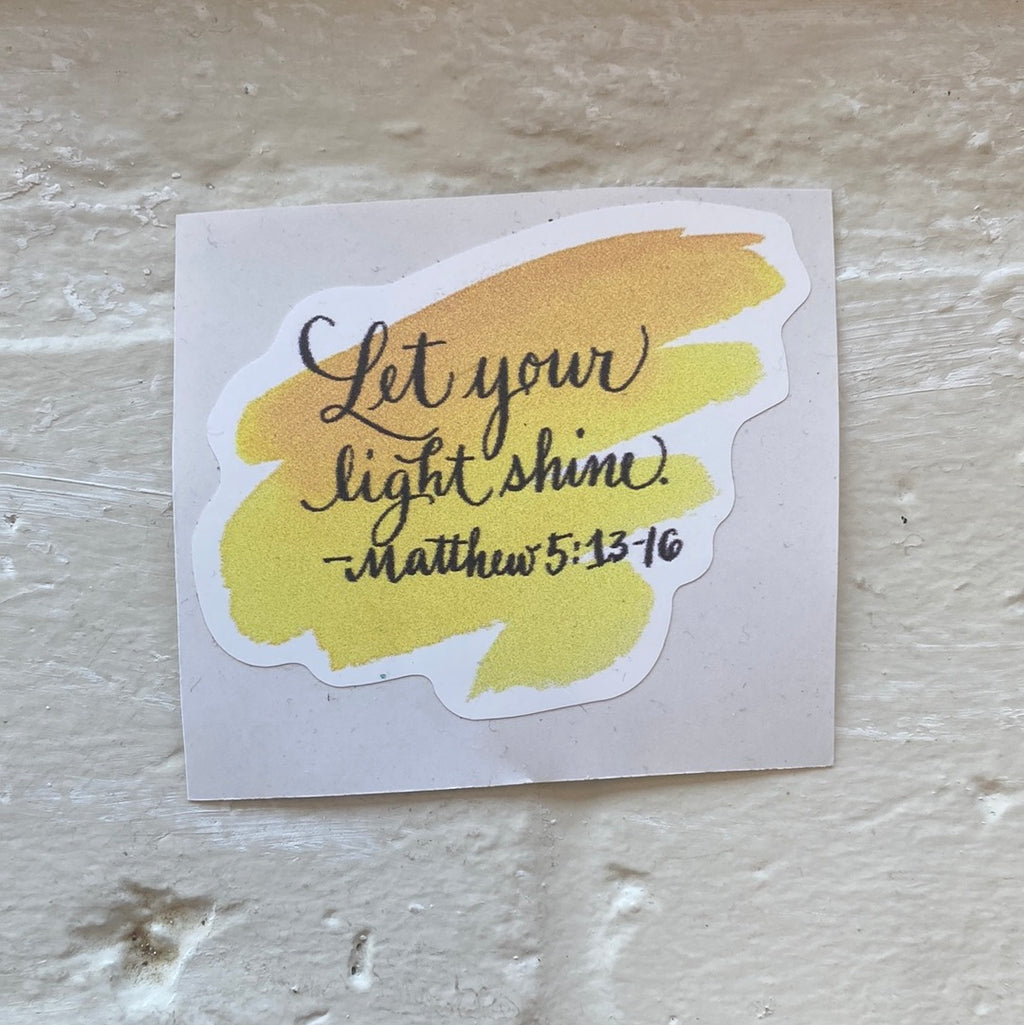 Let your
light shine.
-Matthew 5:13-16